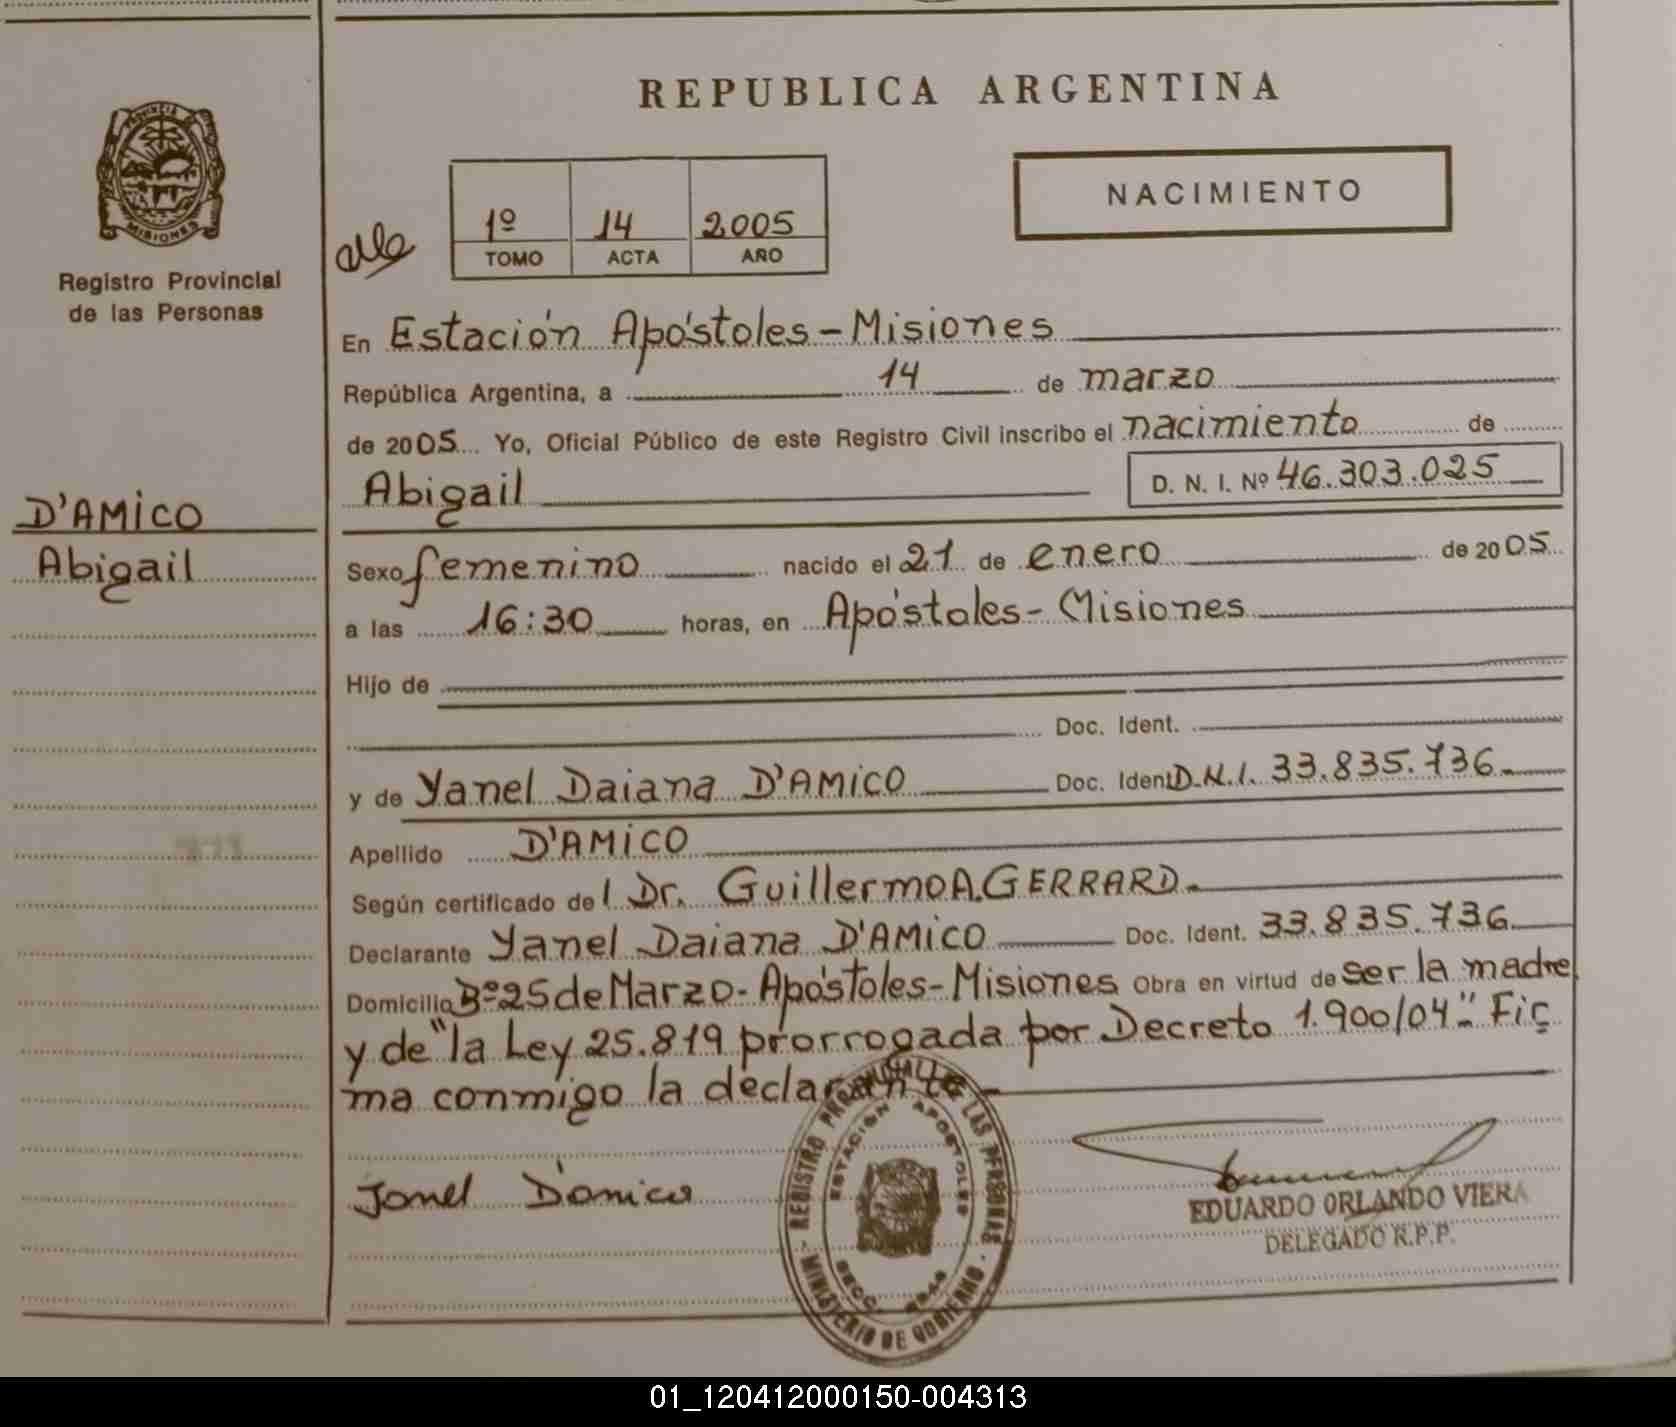 REPUBLICA ARGENTINA
PROVINCIA DE
MISIONES
Registro Provincial
de las Personas
NACIMIENTO
1º 14 2005
TOMO ACTA AÑO
En Estación Apóstoles-Misiones
República Argentina, a 14 de marzo
de 2005 Yo, Oficial Público de este Registro Civil inscribo el nacimiento de
Abigail D. N. I. Nº 46.303.025
D'AMICO
Abigail
Sexo femenino nacido el 21 de enero de 2005
a las 16:30 horas, en Apóstoles-Misiones
Hijo de
Doc. Ident.
y de Yanel Daiana D'AMICO Doc. Ident D.N.I. 33.835.736
Apellido D'AMICO
Según certificado del Dr. Guillermo A. GERRARD
Declarante Yanel Daiana D'AMICO Doc. Ident. 33.835.736
Domicilio Bº 25 de Marzo-Apóstoles-Misiones Obra en virtud de ser la madre
y de "la Ley 25.819 prorrogada por Decreto 1.900/04". Fir
ma conmigo la declarante
REGISTRO PROVINCIAL DE LAS PERSONAS
ESTACION APOSTOLES
SECC.
MINISTERIO DE GOBIERNO
EDUARDO ORLANDO VIERA
DELEGADO R.P.P.
01_120412000150-004313